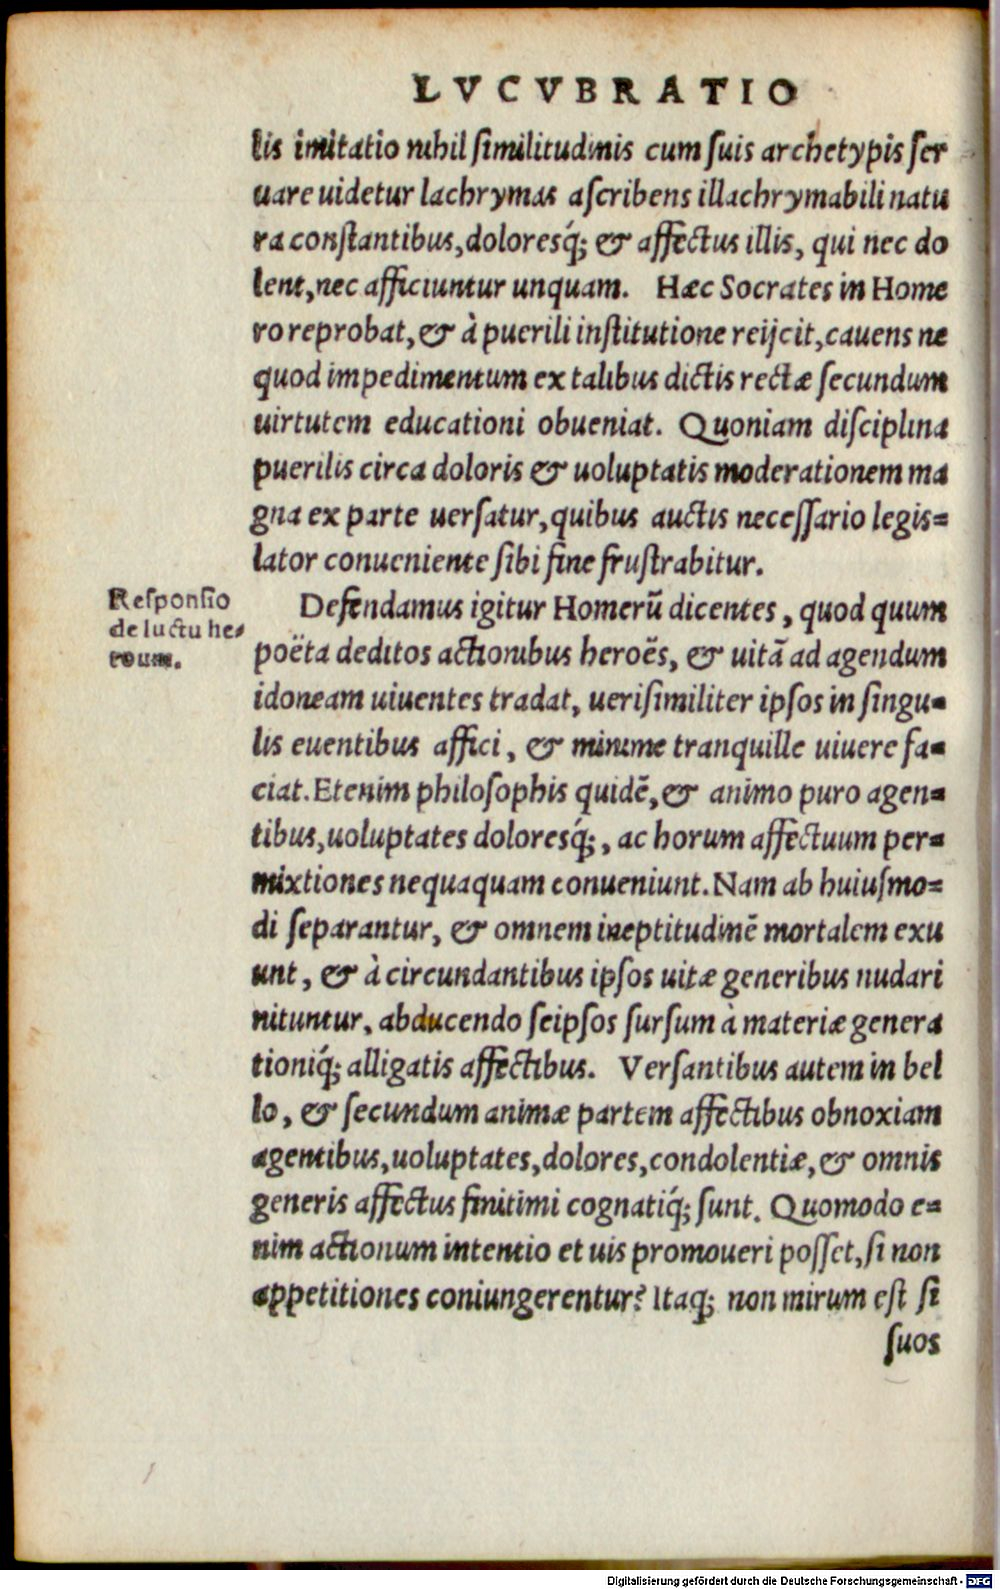 LVCVBRATIO
lis imitatio nihil similitudinis cum suis archetypis ser
uare uidetur lachrymas ascribens illachrymabili natu
ra constantibus, doloresq́; & affectus illis, qui nec do
lent, nec afficiuntur unquam. Hæc Socrates in Home
ro reprobat, & à puerili institutione reijcit, cauens ne
quod impedimentum ex talibus dictis rectæ secundum
uirtutem educationi obueniat. Quoniam disciplina
puerilis circa doloris & uoluptatis moderationem ma
gna ex parte uersatur, quibus auctis necessario legis=
lator conueniente sibi fine frustrabitur.
Responsio
de luctu he=
roum.
Defendamus igitur Homerū dicentes, quod quum
poëta deditos actionibus heroēs, & uitā ad agendum
idoneam uiuentes tradat, uerisimiliter ipsos in singu=
lis euentibus affici, & minime tranquille uiuere fa=
ciat. Etenim philosophis quidē, & animo puro agen=
tibus, uoluptates doloresq́;, ac horum affectuum per=
mixtiones nequaquam conueniunt. Nam ab huiusmo=
di separantur, & omnem ineptitudinē mortalem exu
unt, & à circundantibus ipsos uitæ generibus nudari
nituntur, abducendo seipsos sursum à materiæ genera
tioniq́; alligatis affectibus. Versantibus autem in bel
lo, & secundum animæ partem affectibus obnoxiam
agentibus, uoluptates, dolores, condolentiæ, & omnis
generis affectus finitimi cognatiq́; sunt. Quomodo e=
nim actionum intentio et uis promoueri posset, si non
appetitiones coniungerentur? Itaq; non mirum est si
suos
Digitalisierung gefördert durch die Deutsche Forschungsgemeinschaft - DFG